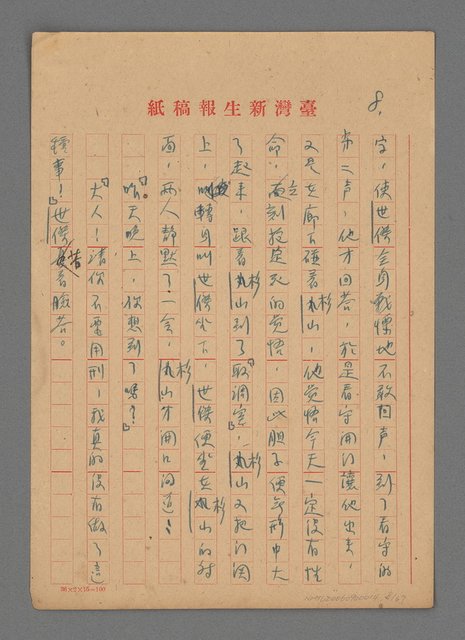 紙稿報生新灣臺
8.
字，使世傑全身戰慄地不敢回声，到了看守的
第二声，他才回答，於是看守開门讓他出來，
又是在廊下碰着杉山，他覚悟今天一定沒有性
命，立刻抱定死的覚悟，因此胆子便無形中大
了起來，跟着杉山到了「取調室」，杉山又把门関
上，轉身叫世傑坐下，世傑便坐在杉山的对
面，两人静默了一会，杉山才開口问道：
「昨天晚上，你想到了嗎？」
「大人！請你不要用刑，我真的沒有做了這
種事！」世傑苦着臉答。
20×2×15=100